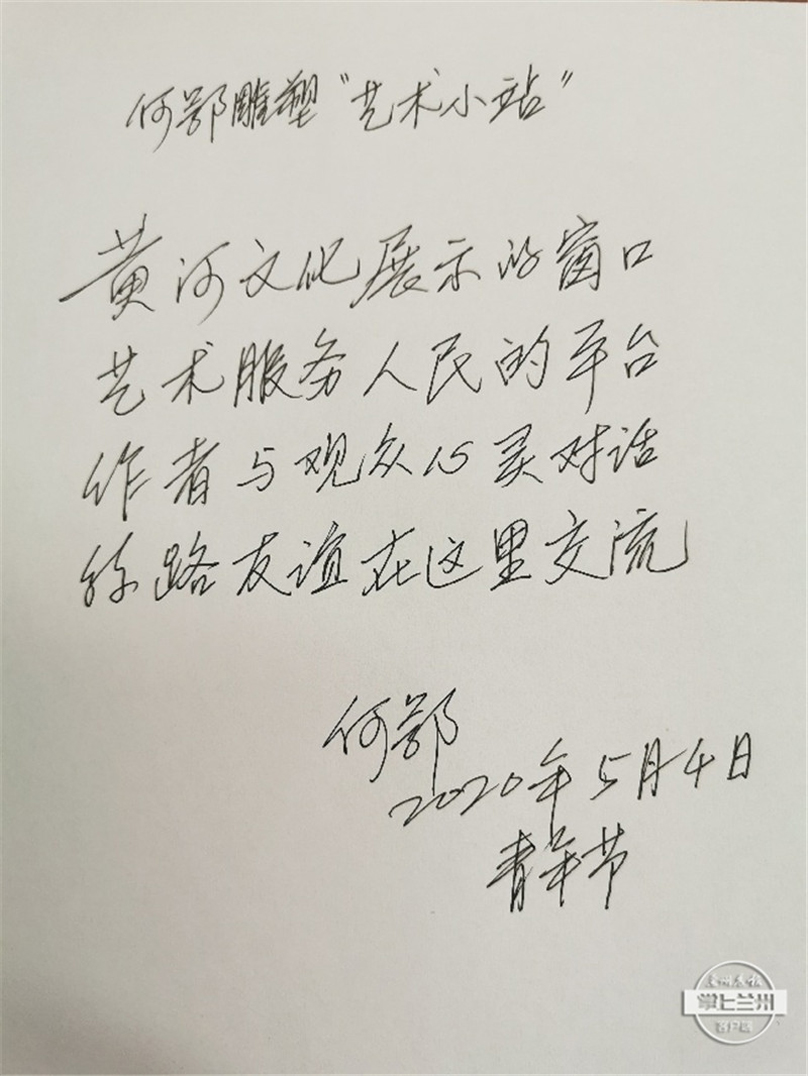 何鄂雕塑“艺术小站”
黄河文化展示的窗口
艺术服务人民的平台
作者与观众心灵对话
丝路友谊在这里交流
何鄂
2020年5月4日
青年节
兰州晨报
掌上兰州
客户端